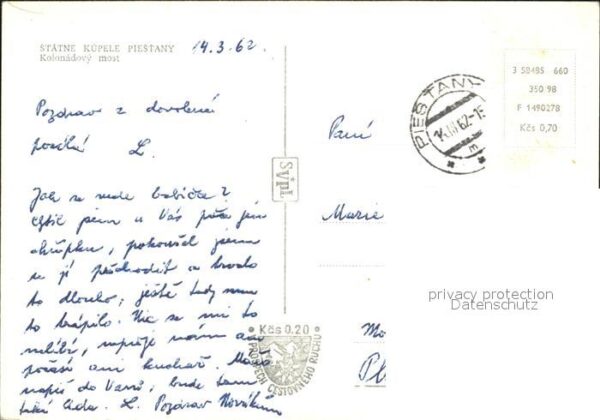 ŠTÁTNE KÚPELE PIEŠŤANY
Kolonádový most
14.3.62.
Pozdrav z dovolené
posílá L.
Jak se vede babičce?
chytil jsem u Vás
chřipku, pokoušel jsem
se ji přechodit a trvalo
to dlouho, ještě tady mne
to trápilo. Víc se mi to
nelíbí,
počasí ani kuchař.
napiš do Varů, bude tam
také Lida. L. Pozdrav Novákům
svpl
Paní
Marie
Mo
Pl
PIEŠŤANY
14.III.62-15
3 58485 660
350 98
F 1490278
Kčs 0,70
Kčs 0.20
PROSPECH CESTOVNÉHO RUCHU
privacy protection
Datenschutz